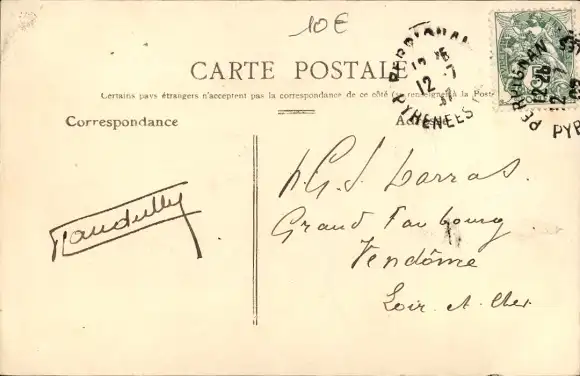 10€
CARTE POSTALE
Certains pays étrangers n'acceptent pas la correspondance de ce côté (se renseigner à la Poste
Correspondance
Adresse
PERPIGNAN
12 - 7
PYRENEES
PERPIGNAN
PYR
Larras.
Grand Faubourg
Vendôme
Loir et Cher